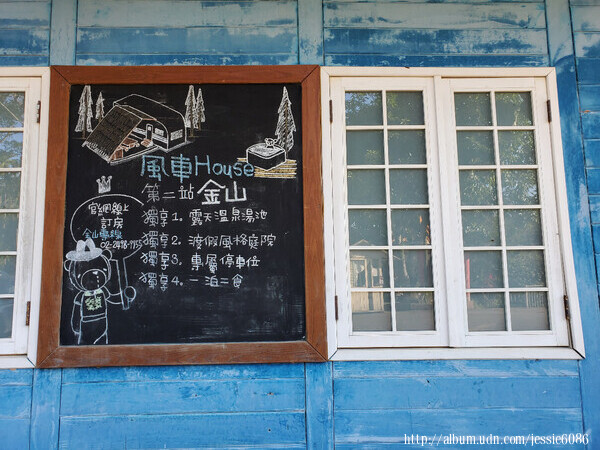 風車House
第二站 金山
獨享1. 露天溫泉湯池
獨享2. 渡假風格庭院
獨享3. 專屬停車位
獨享4. 一泊二食
官網線上
訂房
金山專線
http://album.udn.com/jessie6086